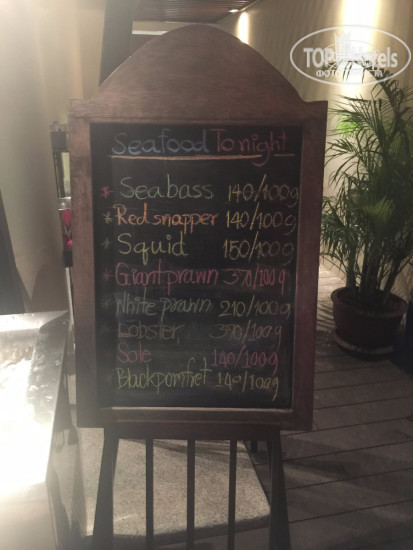 TOP Hotels
Seafood Tonight
Seabass 140/100g
Red snapper 140/100g
Squid 150/100g
Giant prawn 370/100g
White prawn 210/100g
Lobster, 390/100g
Sole 140/100g
Black pomfret 140/100g